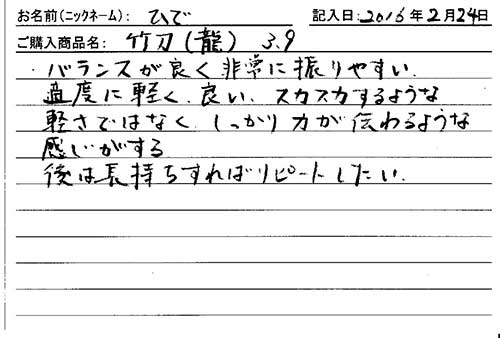 お名前(ニックネーム): ひで 記入日:2016年2月24日
ご購入商品名: 竹刀(龍) 3.9
・バランスが良く非常に振りやすい.
適度に軽く、良い、スカスカするような
軽さではなく、しっかり力が伝わるような
感じがする
後は長持ちすればリピートしたい.